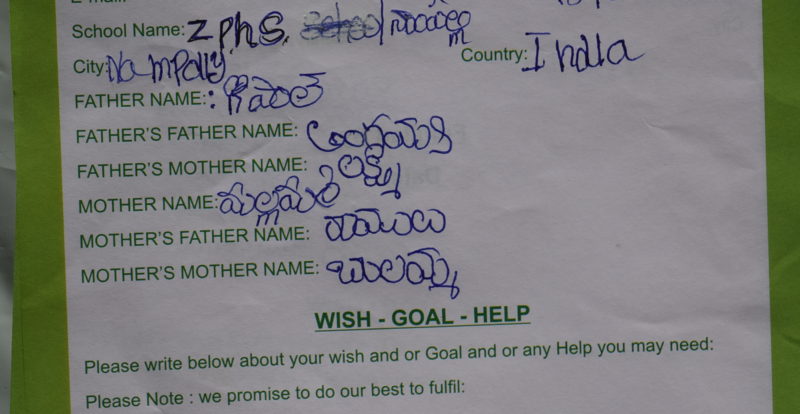 School Name: Z P H S. నాంపల్లి
City: Nampally. Country: India
FATHER NAME::
FATHER'S FATHER NAME:
FATHER'S MOTHER NAME: లక్ష్మి
MOTHER NAME:
MOTHER'S FATHER NAME: రాములు
MOTHER'S MOTHER NAME: బాలమ్మ
WISH - GOAL - HELP
Please write below about your wish and or Goal and or any Help you may need:
Please Note : we promise to do our best to fulfil: